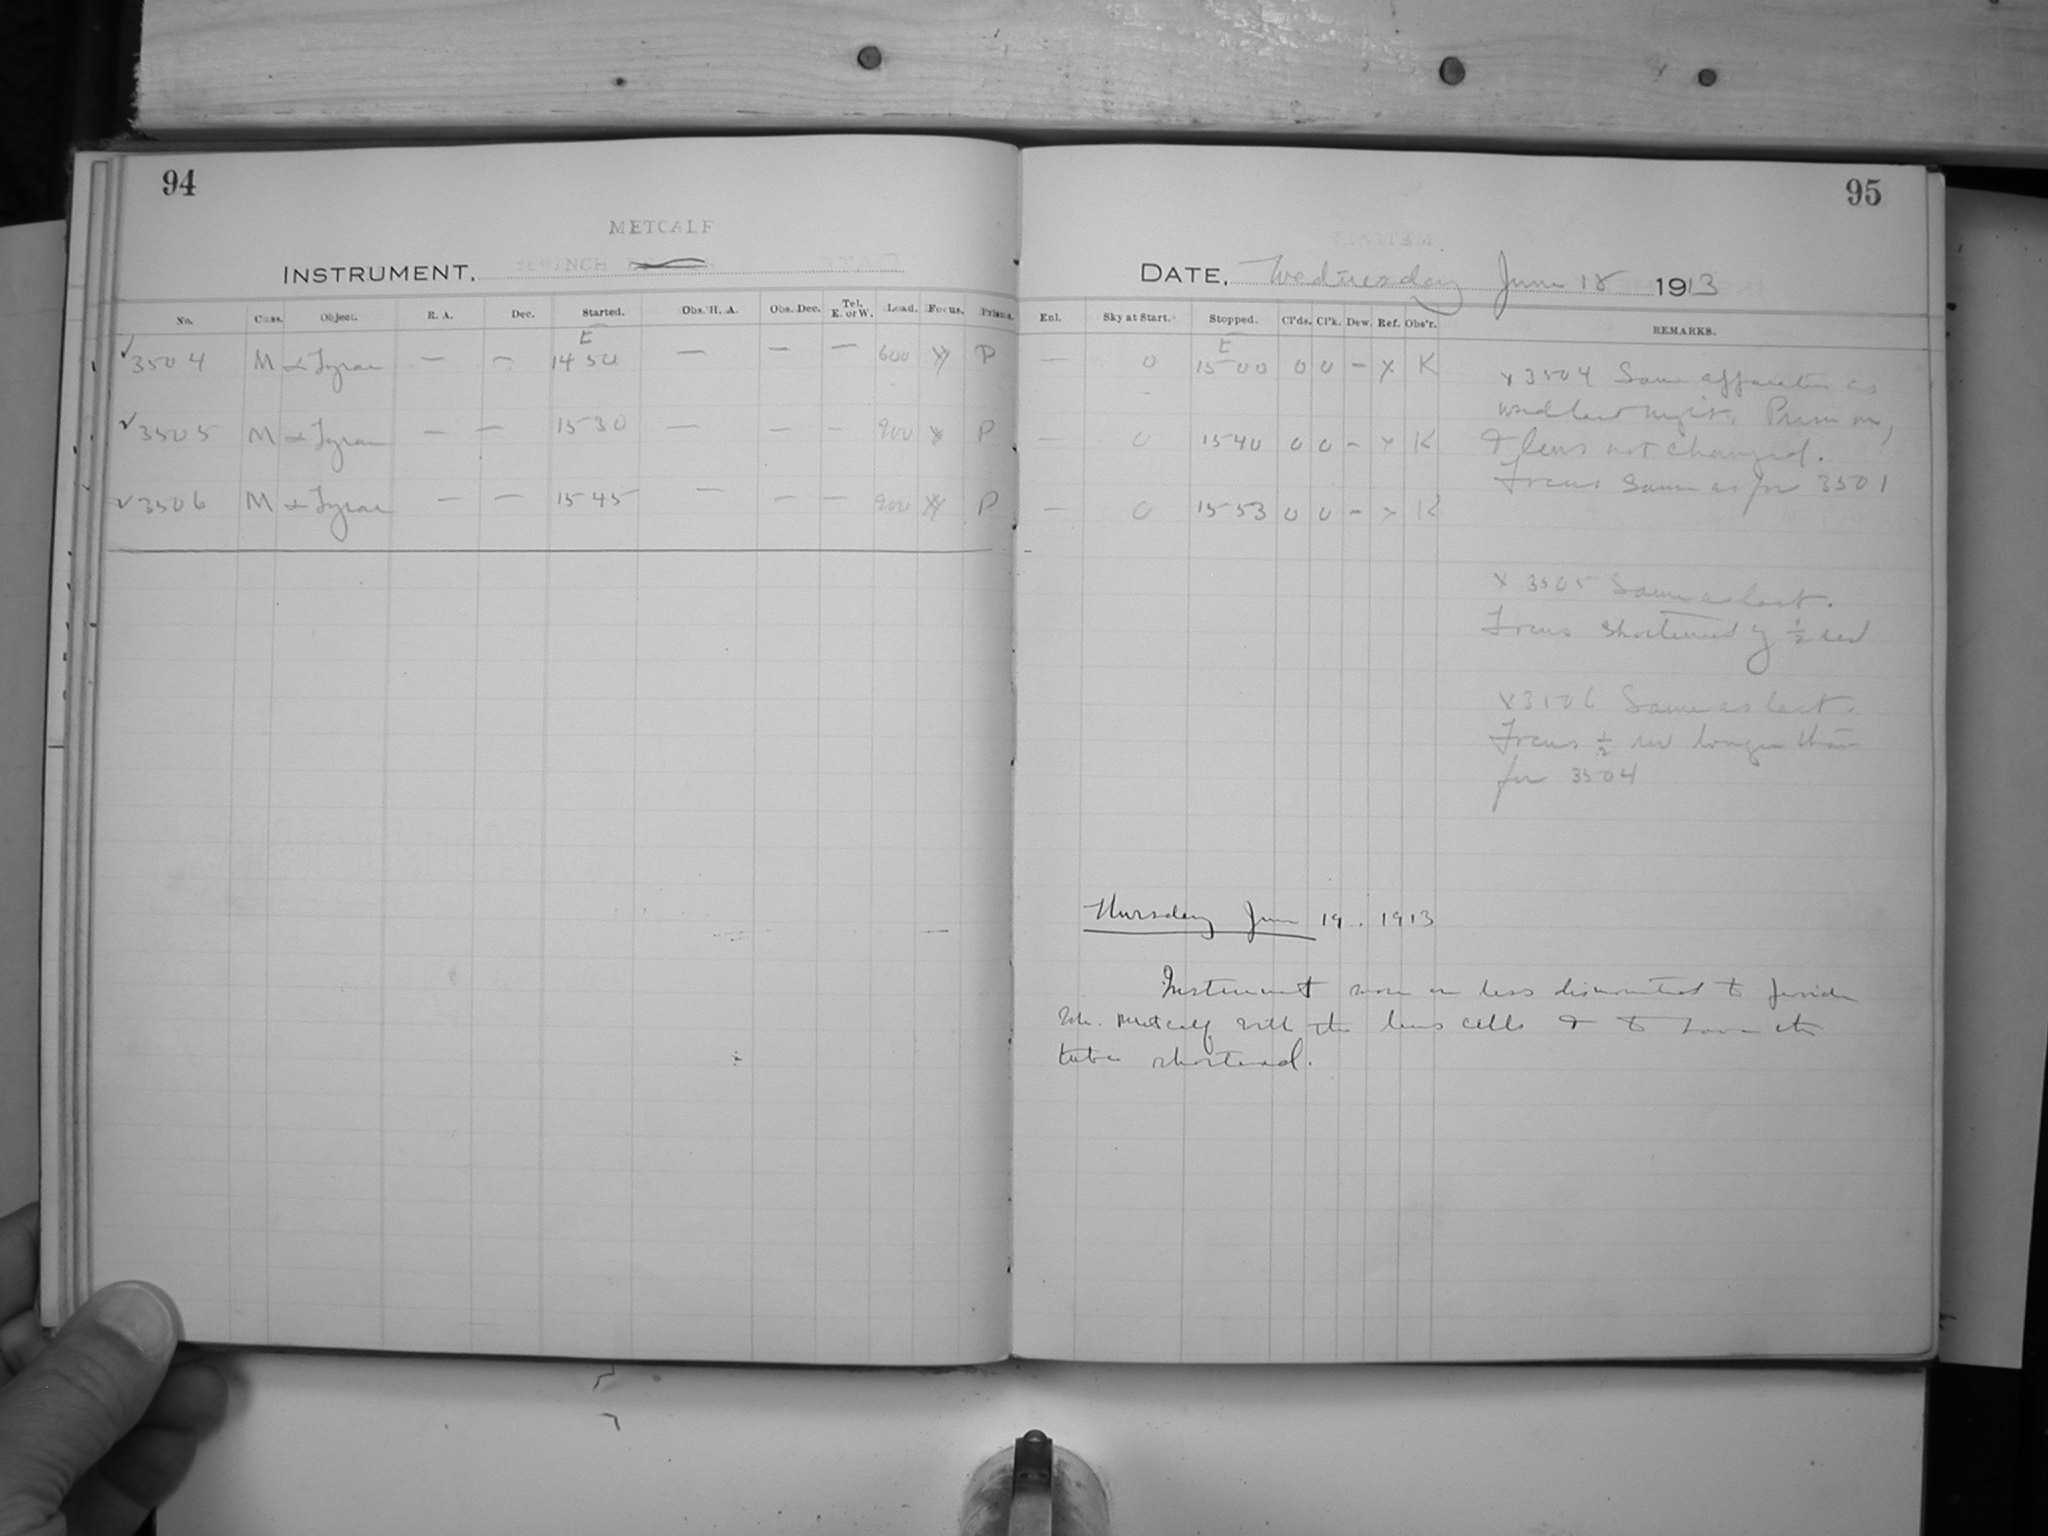 94
METCALF
INSTRUMENT.
No. Class. Object. R. A. Dec. Started. Obs. H. A. Obs. Dec. Tel. E. or W. Load. Focus. Prisms.
E
✓3504 M α Lyrae — — 14 50 — — — 600 P
✓3505 M α Lyrae — — 15 30 — — — 900 P
✓3506 M α Lyrae — — 15 45 — — — 900 P
95
DATE, Wednesday June 18 1913
Enl. Sky at Start. Stopped. Cl'ds. Cl'k. Dew. Ref. Obs'r. REMARKS.
E
— 0 15 00 0 0 – x K
— 0 15 40 0 0 – x K
— 0 15 53 0 0 – x K
x 3504 Same apparatus as
used last night. Prism on,
& lens not changed.
Focus same as for 3501
x 3505 Same as last.
Focus shortened by ½ rev
x 3506 Same as last.
Focus ½ rev longer than
for 3504
Thursday June 19. 1913
Instrument more or less dismounted to provide
Mr. Metcalf with the lens cells & to have the
tube shortened.